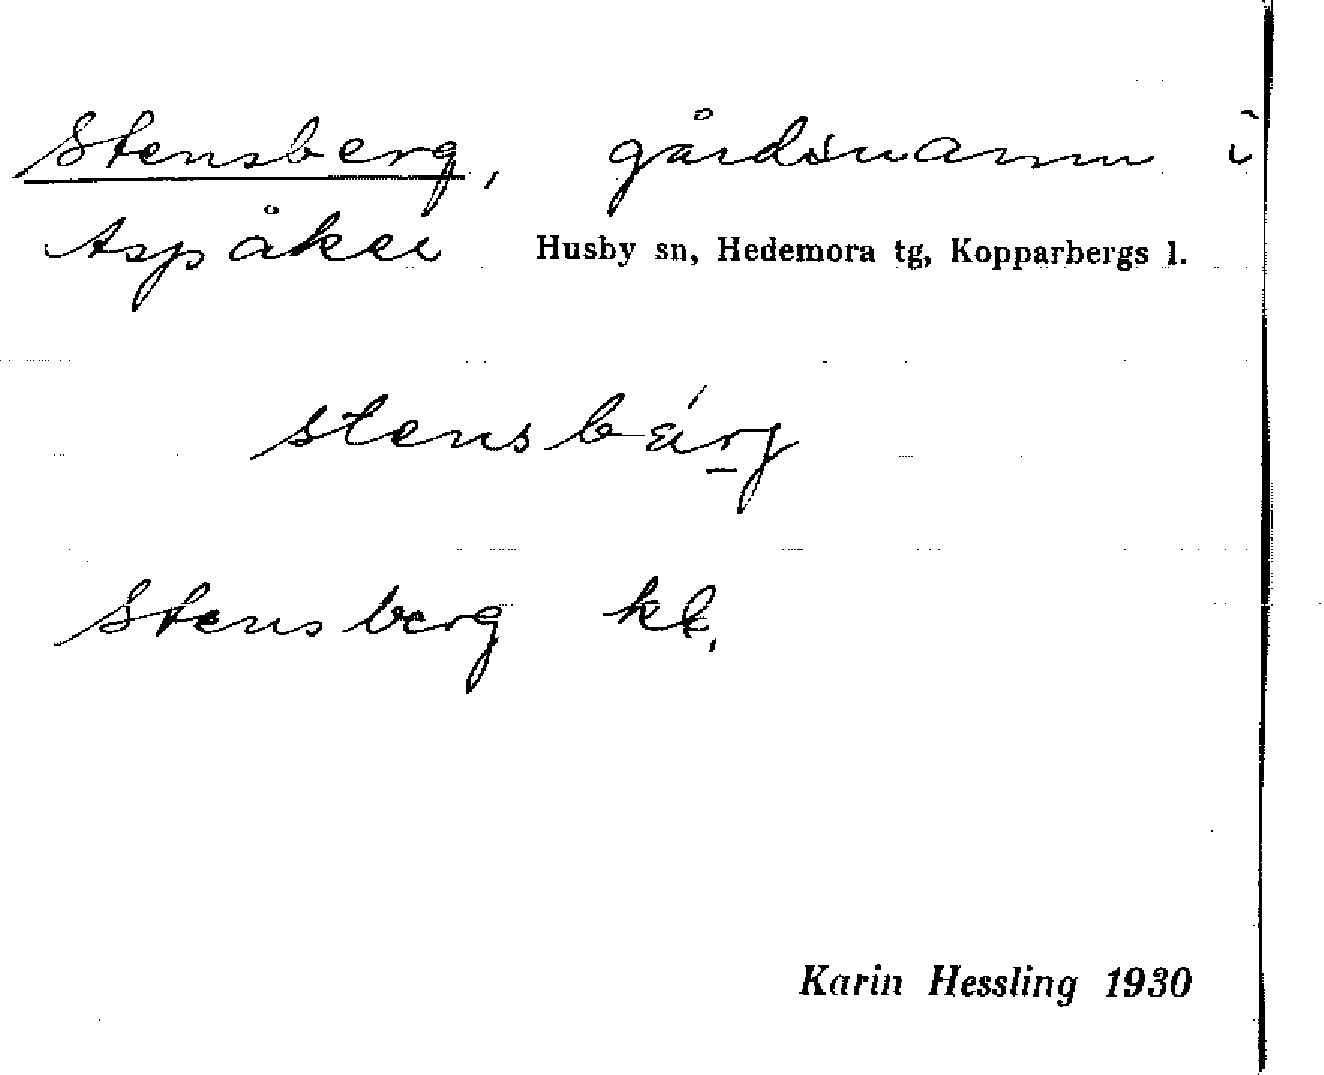 Stensberg, gårdsnamn i
Aspåker Husby sn, Hedemora tg, Kopparbergs l.
stensbárg
Stensberg kl.
Karin Hessling 1930